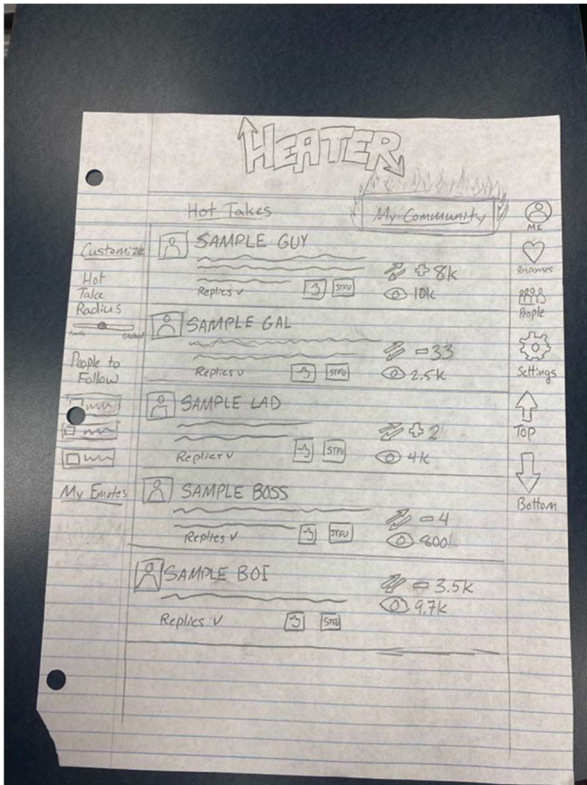 HEATER
Hot Takes
My Community
ME
Customize
Hot
Take
Radius
People to
Follow
My Emotes
SAMPLE GUY
8k
Replies v
STFU
10k
SAMPLE GAL
33
Replies v
STFU
2.5k
SAMPLE LAD
2
Replies v
STFU
4k
SAMPLE BOSS
4
Replies v
STFU
800
SAMPLE BOI
3.5k
9.7k
Replies v
STFU
People
Settings
Top
Bottom